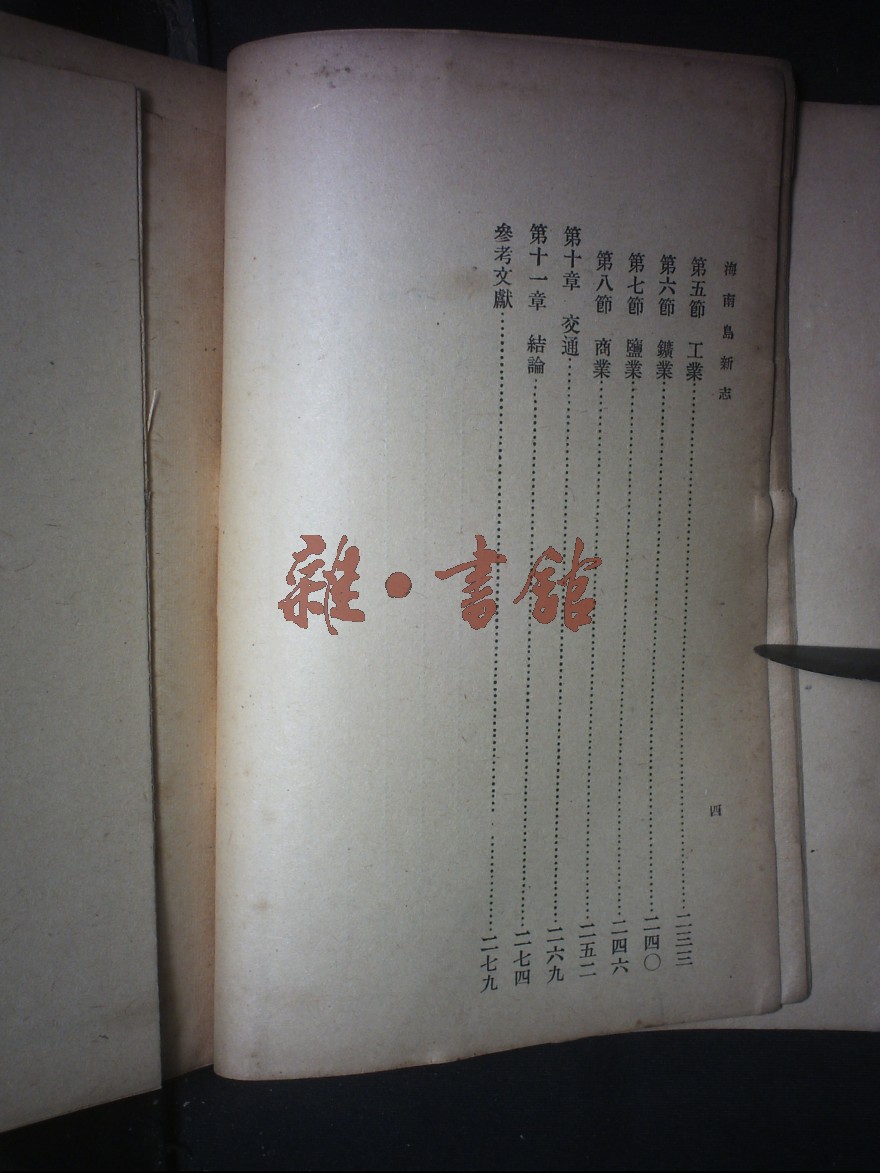 海南島新志
四
第五節　工業……二三三
第六節　鑛業……二四〇
第七節　鹽業……二四六
第八節　商業……二五二
第十章　交通……二六九
第十一章　結論……二七四
參考文獻……二七九
雜·書館